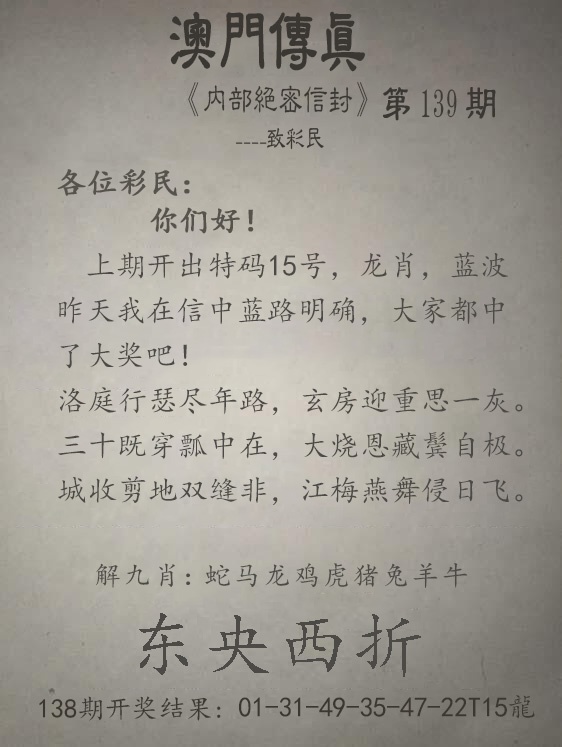 澳門傳真
《内部絕密信封》第139期
----致彩民
各位彩民：
你们好！
上期开出特码15号，龙肖，蓝波
昨天我在信中蓝路明确，大家都中
了大奖吧！
洛庭行瑟尽年路，玄房迎重思一灰。
三十既穿瓢中在，大烧恩藏鬓自极。
城收剪地双缝非，江梅燕舞侵日飞。
解九肖：蛇马龙鸡虎猪兔羊牛
东央西折
138期开奖结果：01-31-49-35-47-22T15龍